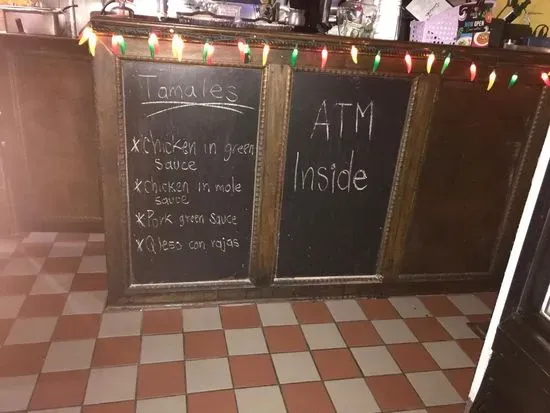 Tamales
x Chicken in green
sauce
x Chicken in mole
sauce
x Pork green sauce
x Qleso con rajas
ATM
Inside
OPEN